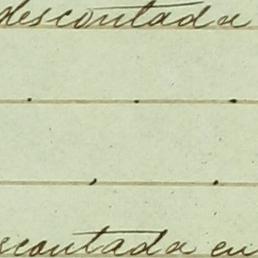 descontada
scontada en